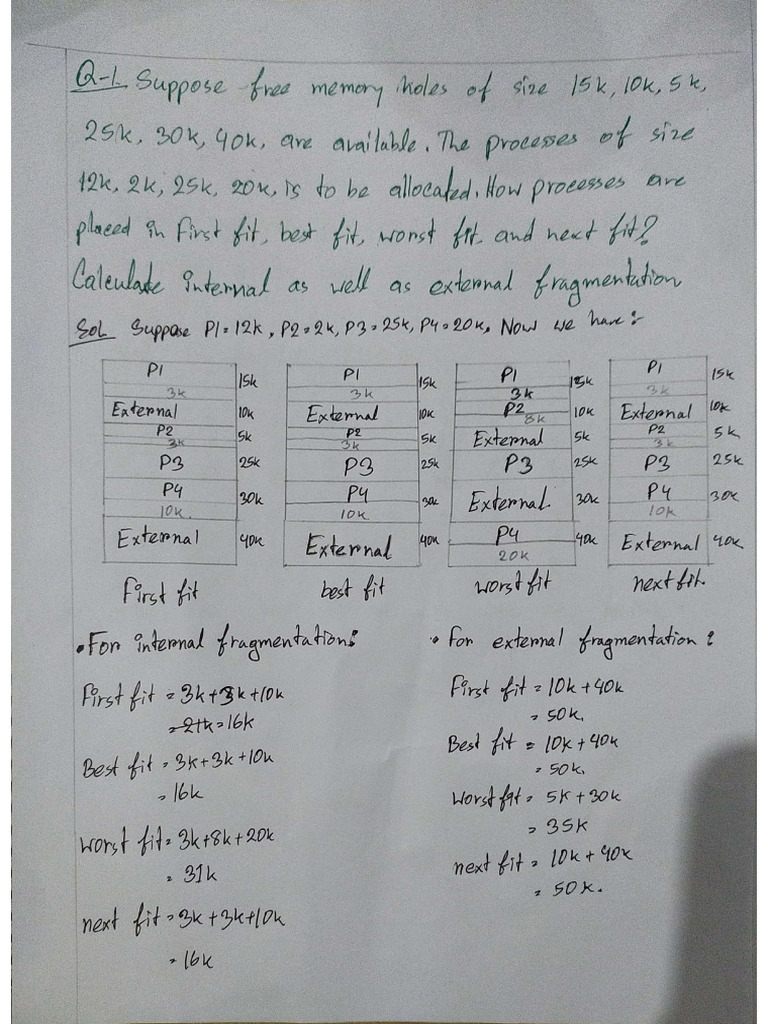 Q-1. Suppose free memory holes of size 15k, 10k, 5k,
25k, 30k, 40k, are available. The processes of size
12k, 2k, 25k, 20k, is to be allocated. How processes are
placed in first fit, best fit, worst fit, and next fit?
Calculate internal as well as external fragmentation
Sol. Suppose P1=12k, P2=2k, P3=25k, P4=20k, Now we have:
P1
3k
15k
External
10k
P2
3k
5k
P3
25k
P4
10k
30k
External
40k
First fit
P1
3k
15k
External
10k
P2
3k
5k
P3
25k
P4
10k
30k
External
40k
best fit
P1
3k
15k
P2
8k
10k
External
5k
P3
25k
External
30k
P4
20k
40k
worst fit
P1
3k
15k
External
10k
P2
3k
5k
P3
25k
P4
10k
30k
External
40k
next fit.
• For internal fragmentation:
First fit = 3k+3k+10k
= 21k = 16k
Best fit = 3k+3k+10k
= 16k
worst fit = 3k+8k+20k
= 31k
next fit = 3k+3k+10k
= 16k
• For external fragmentation:
First fit = 10k+40k
= 50k.
Best fit = 10k+40k
= 50k.
Worst fit = 5k+30k
= 35k
next fit = 10k+40k
= 50k.